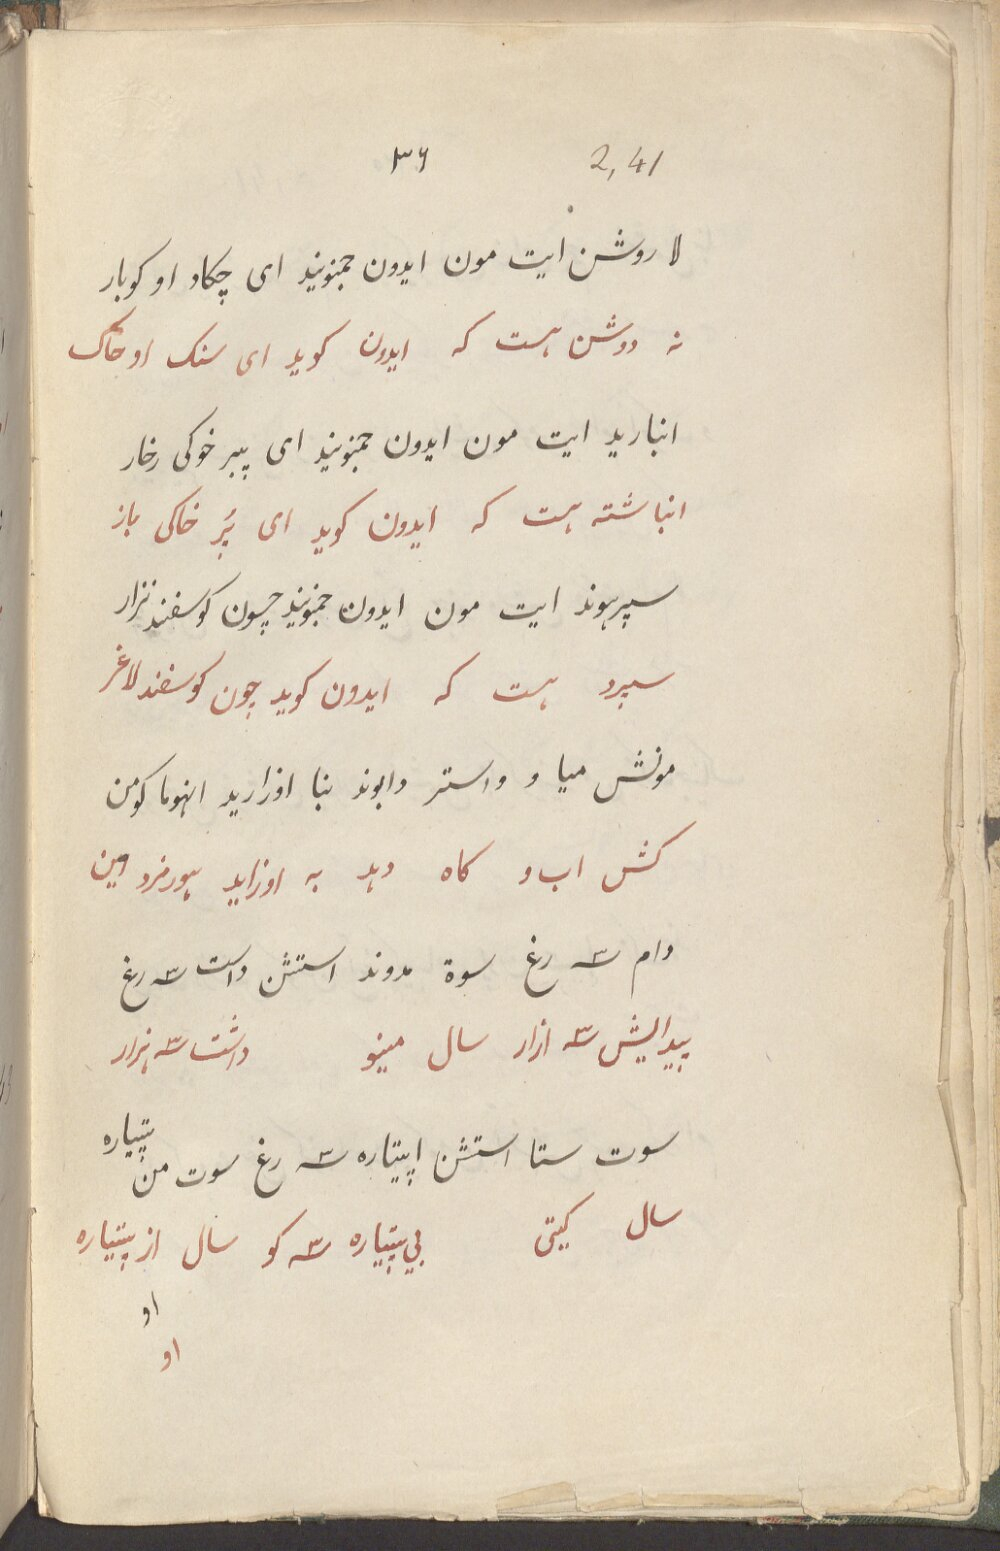 ۳۶ 2,41
لا روشن ایت مون ایدون جمنونید ای چکاد او کوبار
نه روشن هست که ایدون کوید ای سنک او خاک
انبارید ایت مون ایدون جمنونید ای پبر خوکی رخار
انباشته هست که ایدون کوید ای پُر خاکی باز
سپرهوند ایت مون ایدون جمنونید چسون کوسفند نزار
سپرد هست که ایدون کوید چون کوسفند لاغر
مونش میا و واستر دابوند بنا اوزارید انهوما کومن
کش اب و کاه دهد به اوزاید هورمزد این
دام سه رغ سوة مدوند استشن داست سه رغ
پیدایش سه ازار سال مینو داشت سه هزار
سوت ستا استشن اپیتاره سه رغ سوت من پتیاره
سال کیتی بی پتیاره سه کو سال از پتیاره
او
او